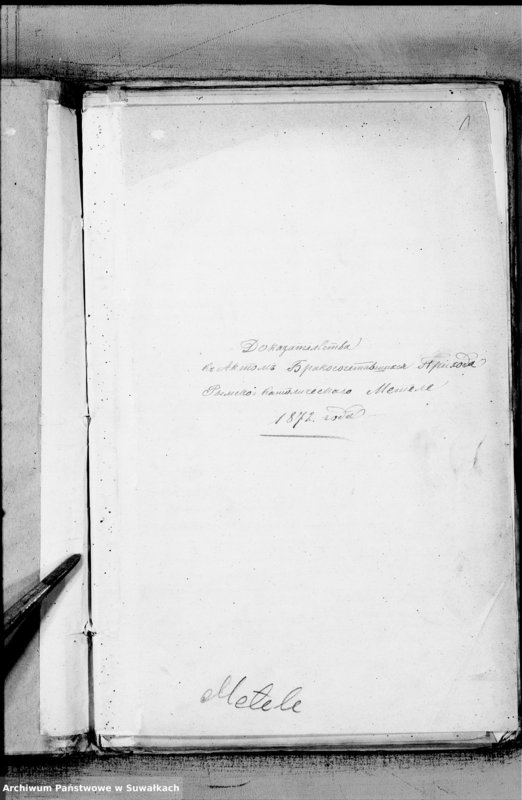 1
Доказательства
къ Актомъ Бракосочетавшихся Прихода
Римско католическаго Метеле
1872 года
Metele
Archiwum Państwowe w Suwałkach